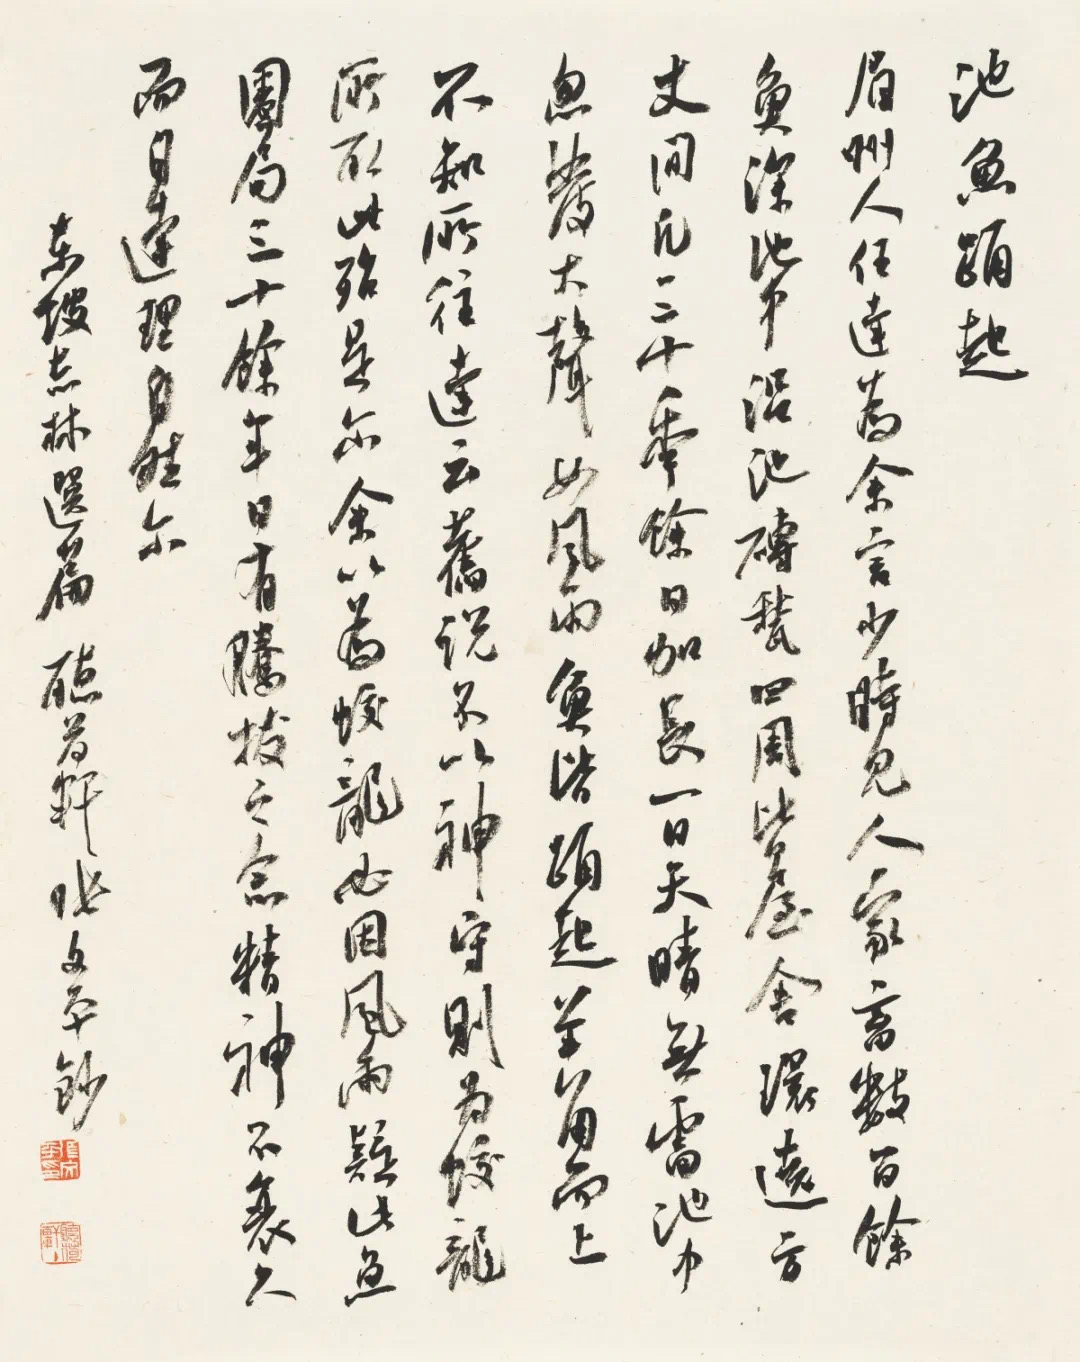 池魚踊起
眉州人任達為余言少時見人家畜數百餘
魚深池中沿池磚甃四周皆屋舍環遶方
丈間凡三十秊餘日加長一日天晴無雷池中
忽發大聲如風雨魚皆踊起羊角而上
不知所往達云舊說不以神守則為蛟龍
所取此殆是尔余以為蛟龍必因風雨疑此魚
圈局三十餘年日有騰拔之念精神不衰久
而自達理自然尔
東坡志林選篇 張文平鈔